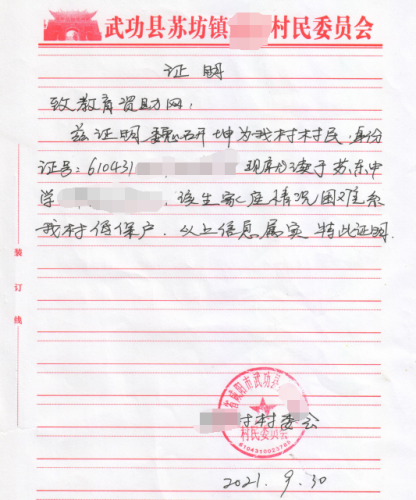 武功县苏坊镇 村民委员会
证明
致教育资助网:
兹证明 魏研坤为我村村民,身份
证号:610431 现就读于苏东中
学 ,该生家庭情况困难系
我村低保户.以上信息属实 特此证明.
装订线
省咸阳市武功县
村村委会
村民委员会
6104310023785
2021.9.30